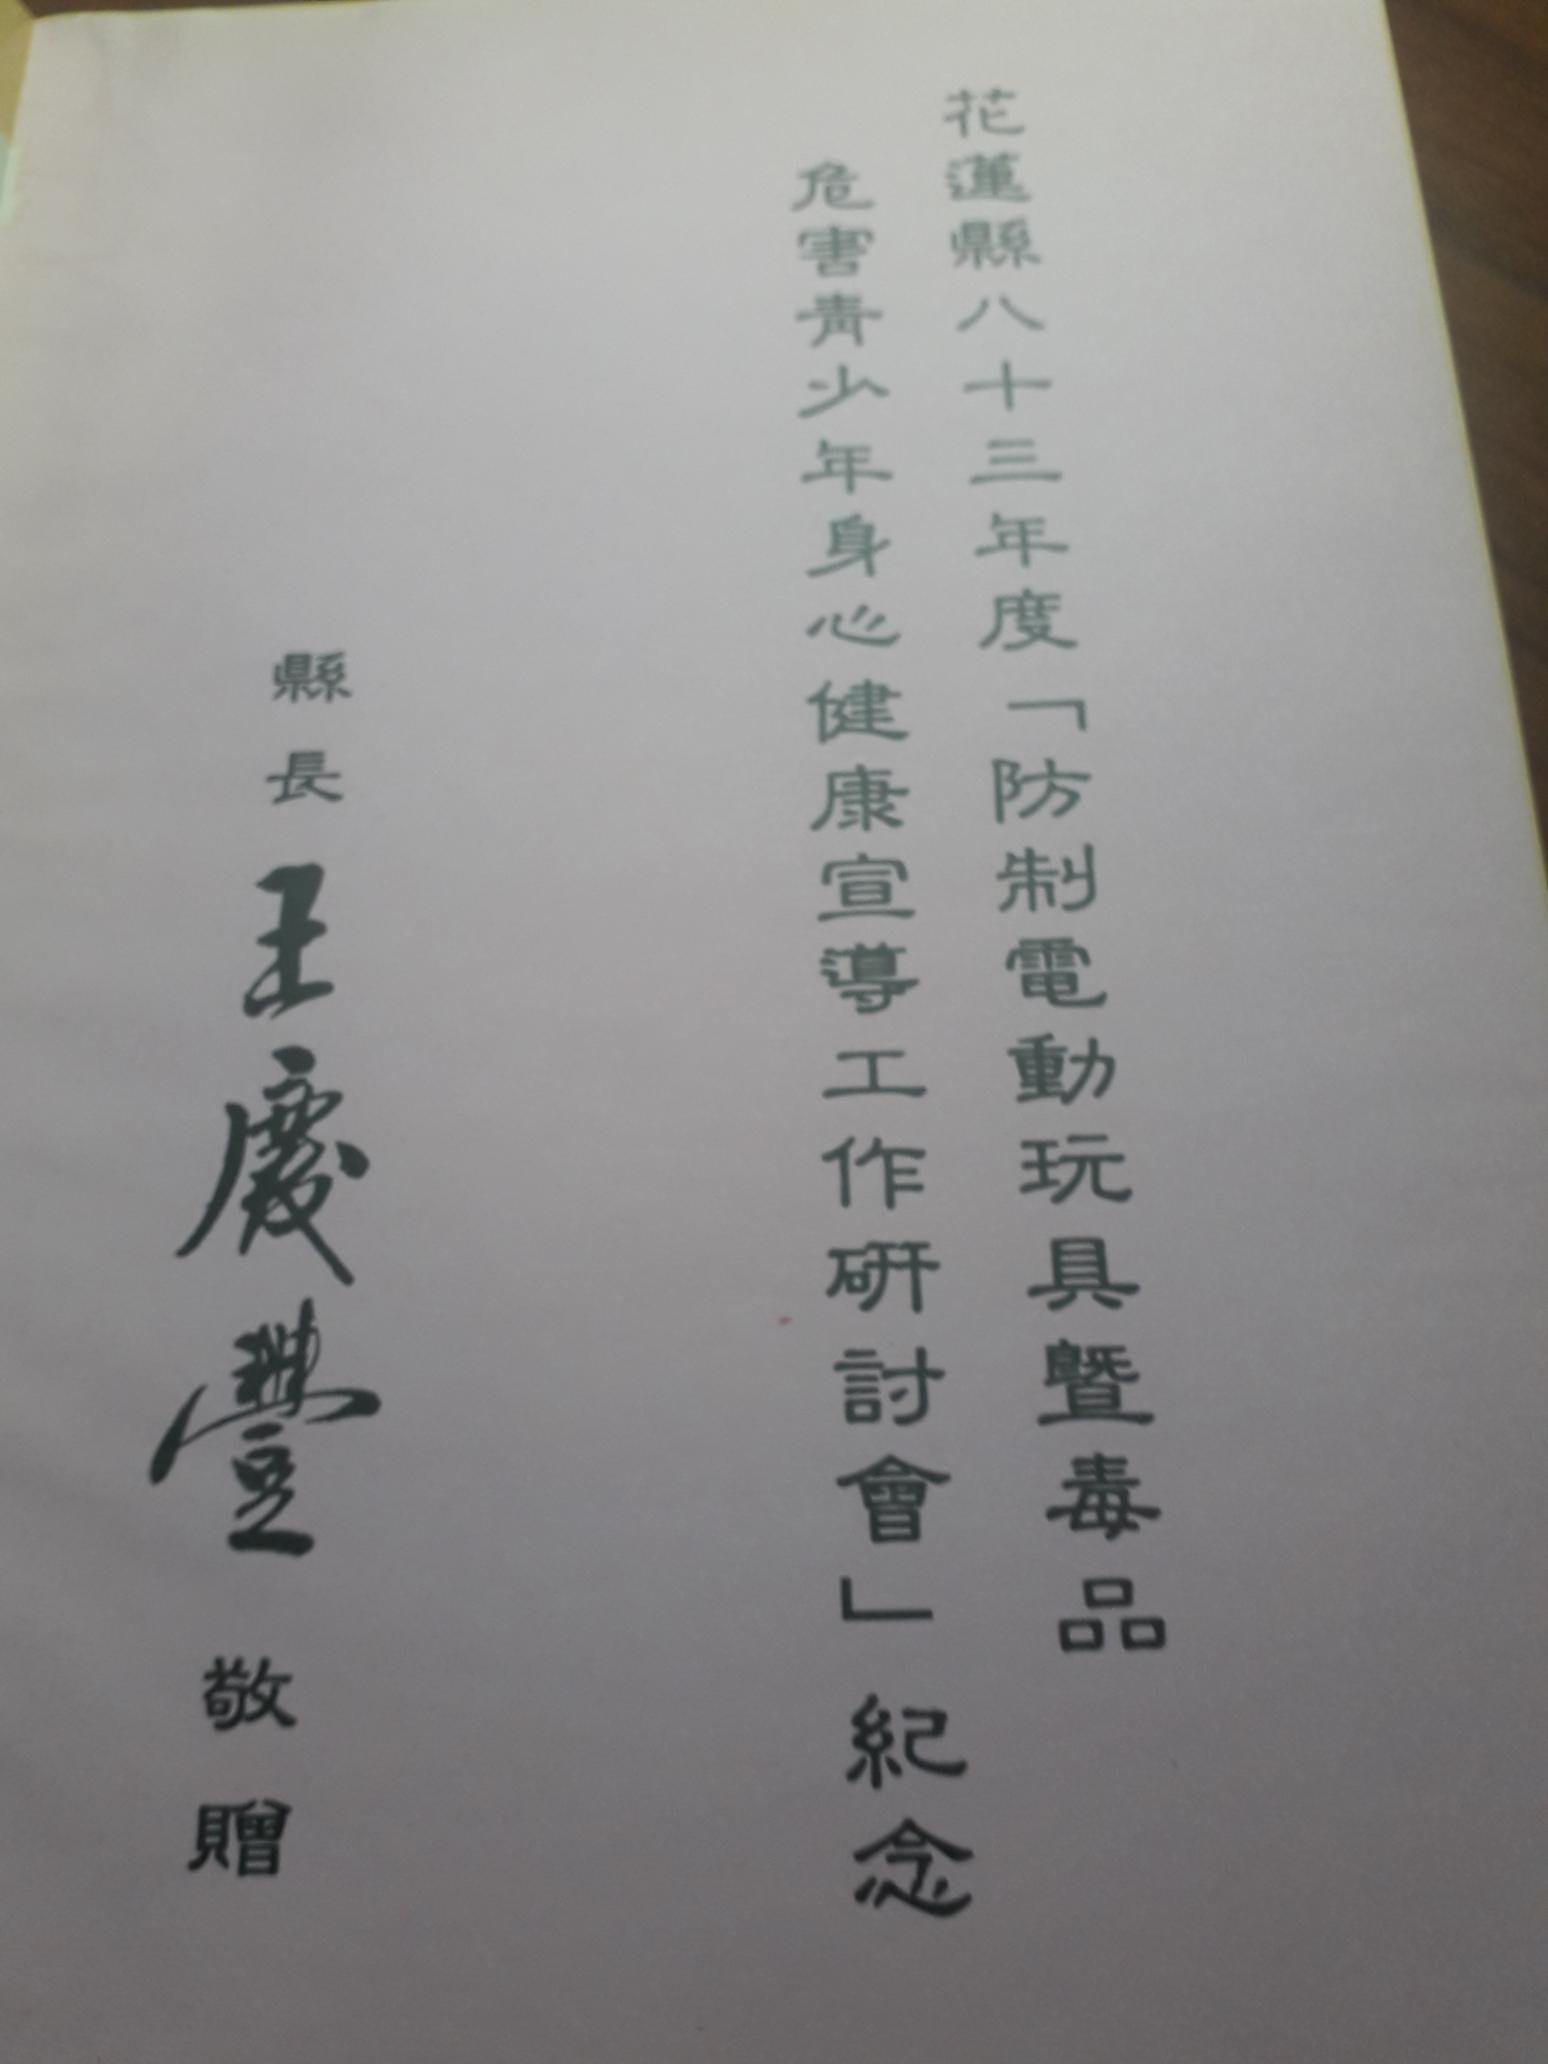 花蓮縣八十三年度「防制電動玩具暨毒品
危害青少年身心健康宣導工作研討會」紀念
縣長王慶豐敬贈